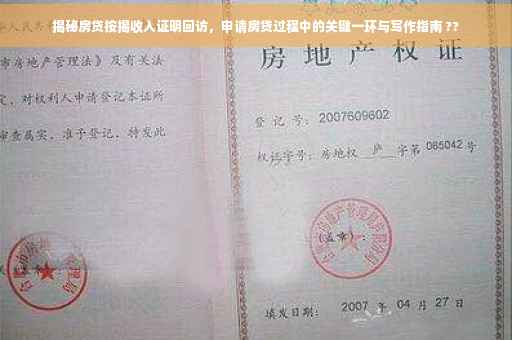 揭秘房贷按揭收入证明回访，申请房贷过程中的关键一环与写作指南??
华人民共
市房地产管理法》及有关法
定，对权利人申请登记本证所
审查属实，准予登记，特发此
房地产权
登记号：2007609602
权证字号：房地权 庐 字第 085042 号
(盖章)：
填发日期：2007 年 04 月 27 日